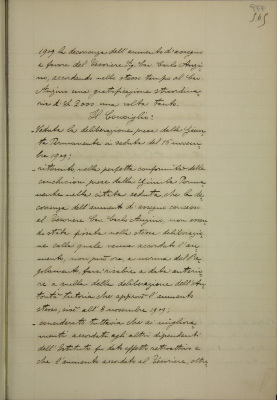 565
1909 la decorrenza dell'aumento d'assegno
a favore del Tesoriere Sig. Cav. Carlo Augi-
no, accordando nello stesso tempo al Cav.
Augino una gratificazione straordina-
ria di L. 2000 una volta tanto.
Il Consiglio:
Veduta la deliberazione presa dalla Giun-
ta Permanente in seduta del 15 novem-
bre 1909;
ritenuto nella perfetta conformità della
conclusione presa dalla Giunta Perma-
nente nella citata seduta che la de-
correnza dell'aumento di assegno concesso
al Tesoriere Cav. Carlo Augino, non essen-
do stata fissata nella stessa deliberazio-
ne colla quale venne accordato l'au-
mento, non può ora, a norma del Re-
golamento, farsi risalire a data anterio-
re a quella della deliberazione dell'Au-
torità tutoria che approvò l'aumento
stesso, cioè all'8 novembre 1909;
considerato tuttavia che ai migliora-
menti accordati agli altri dipendenti
dell'Istituto fu dato effetto retroattivo e
che l'aumento accordato al Tesoriere, oltre